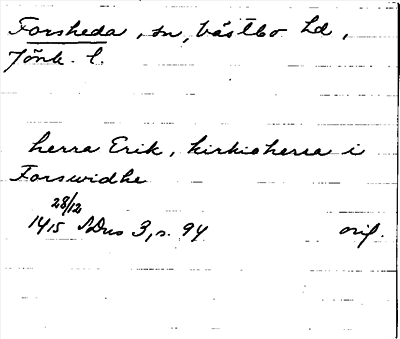 Forsheda, sn, Västbo hd,
Jönk. l.
herra Erik, kirkioherra i
Forswidhe
28/12
1415 SDns 3, s. 94 orig.